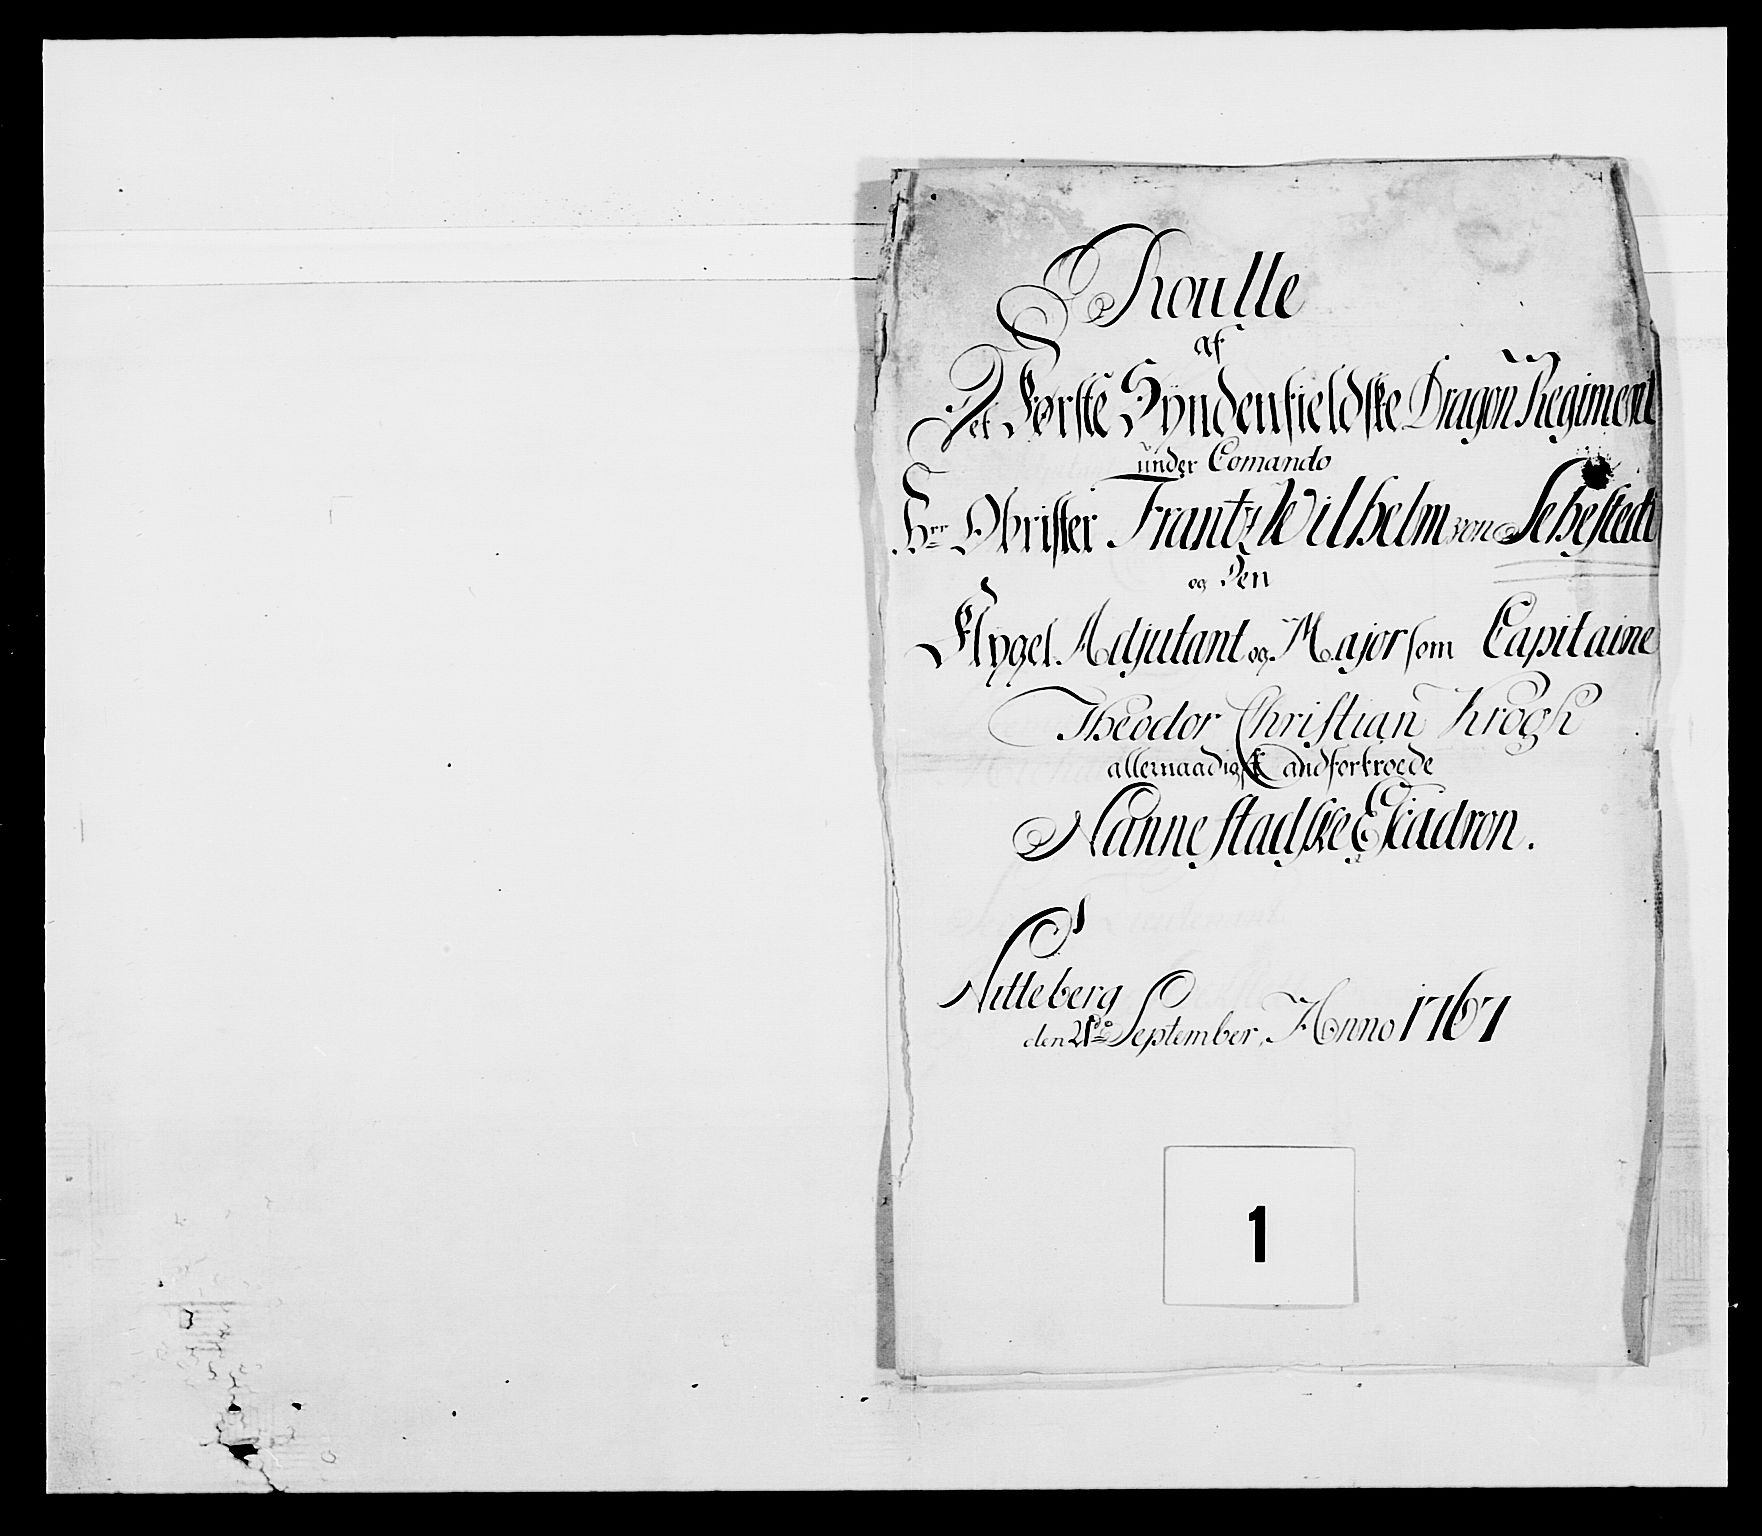 Roulle
af
Det Første Syndenfieldske Dragon Regiment
under Comando
Hrr Obrister Frantz Wilhelm von Sehestedt
og Den
Flygel Adjutant og Major som Capitaine
Theodor Christian Krogh
allernaadigst andfortroede
Nannestadske Esqadron.
Nitteberg
den 21de September, Anno 1767
1